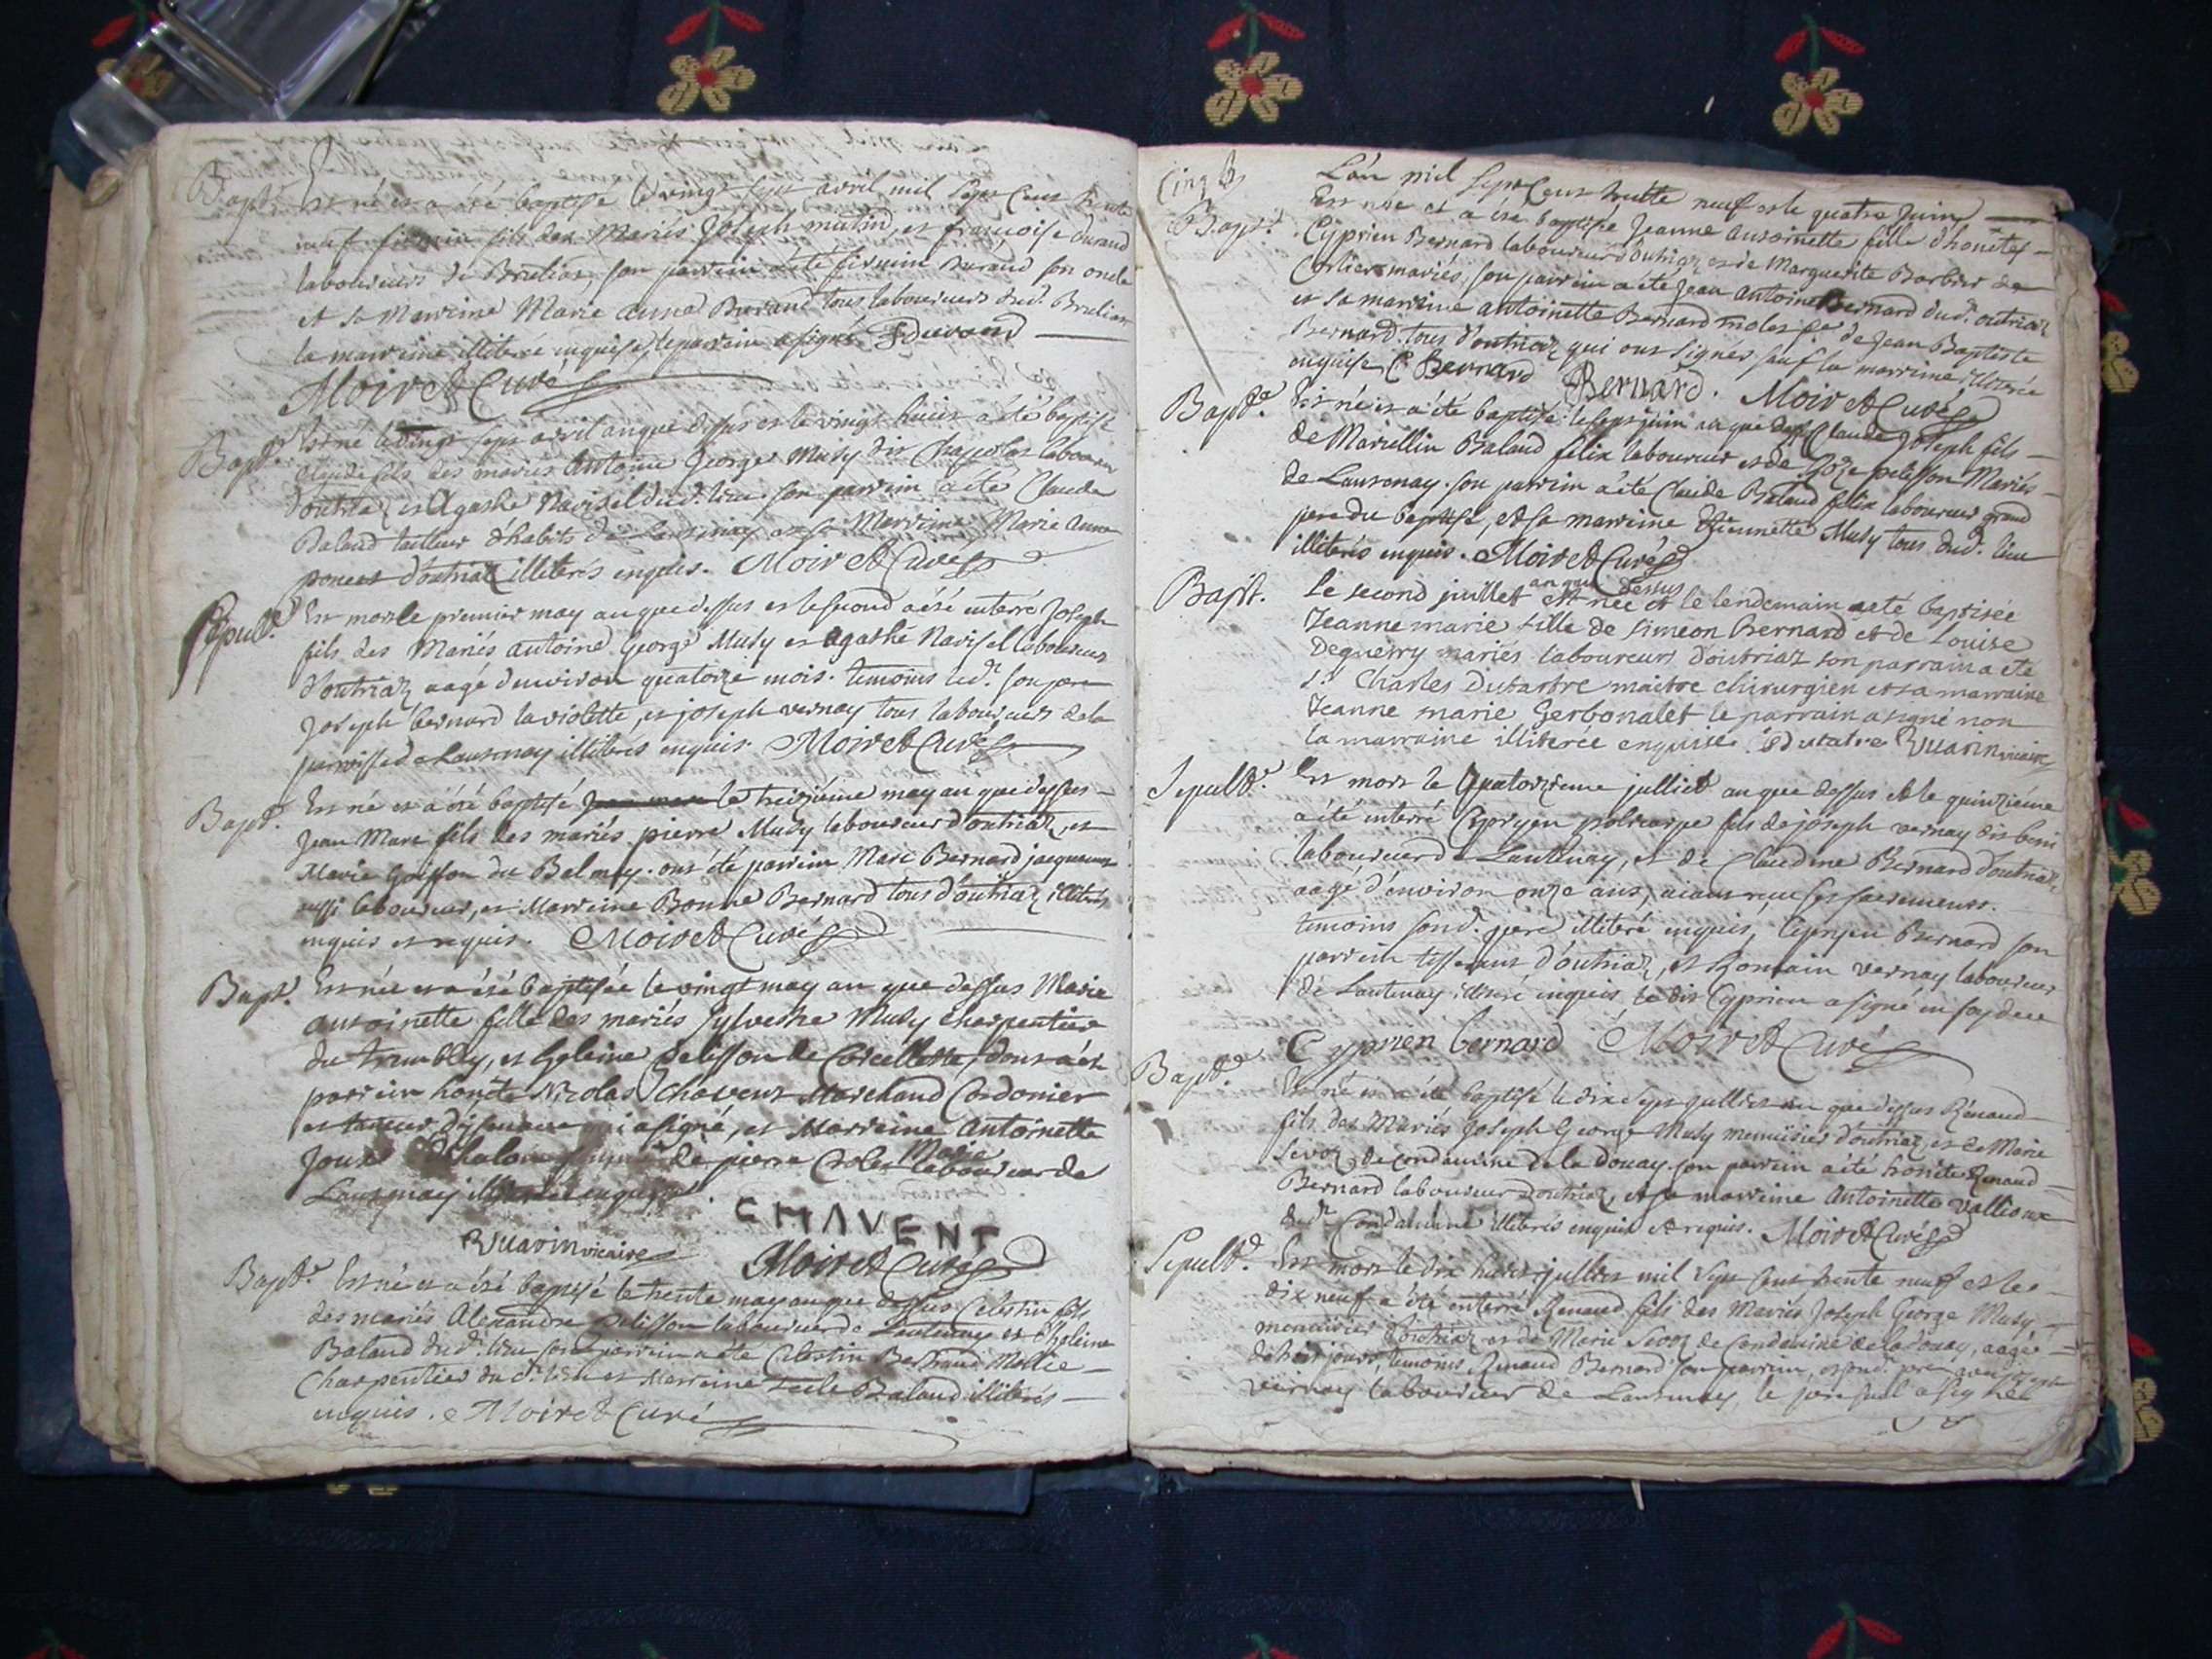 Bapt.e Est né et a été baptisé le vingt sept avril mil sept cent trente
neuf firmin fils des Mariés Joseph mutin et françoise durand
laboureurs de Brulias, son parrein a été firmin Durand son oncle
et sa Marreine Marie Anne Durand tous laboureurs dud. Brulias
la marreine illiterée enquise, le parrein a signé F durand
Moiret Curé
Bapt.e Est né le vingt sept avril an que dessus et le vingt huict a été baptisé
fils des mariés Antoine George Musy dit laboureur
d'outriaz et Agathe Navisel dud. lieu. son parrein a été Claude
Balaud tailleur d'habits de Lantenay et sa Marreine Marie Anne
poncet d'outriaz illiterés enquis. Moiret Curé
Sepult.e Est mort le premier may an que dessus et le second a été enterré Joseph
fils des Mariés antoine George Musy et Agathe Navisel laboureurs
d'outriaz aagé d'environ quatorze mois. temoins led. son pere
Joseph bernard la violette, et joseph vernay tous laboureurs de la
parroisse de Lantenay illiterés enquis. Moiret Curé
Bapt. Est né et a été baptisé le treizième may an que dessus
Jean Marc fils des mariés pierre Musy laboureur d'outriaz, et
Marie Goiffon du Balmay. ont été parrein Marc Bernard
aussi laboureur, et Marreine Bonne Bernard tous d'outriaz illiterés
enquis et requis. Moiret Curé
Bapt. Est née et a été baptisée le vingt may an que dessus Marie
antoinette fille des mariés Sylvestre Musy charpentier
du trembley, et Heleine Pelisson de Corcellette, dont a été
parrein honete Nicolas Chavent Marchand Cordonier
et taneur qui a signé, et Marreine Antoinette
Joux de pierre Marie laboureur de
Lantenay illiterée enquise.
CHAVENT
Vuarin vicaire Moiret Curé
Bapt.e Est né et a été baptisé le trente may an que dessus Celestin fils
des mariés Alexandre Pelisson laboureur de Lantenay et Heleine
Balaud dud. lieu son parrein a été Celestin Bertrand
Charpentier dud. lieu et Marreine Balaud illiterés
enquis. Moiret Curé
Cinq
L'an mil sept cent trente neuf et le quatre Juin
Bapt.e Est née et a été baptisée Jeanne Antoinette fille d'honetes
Cyprien Bernard laboureur d'outriaz et de Marguerite Barbier de
Corlier mariés, son parrein a été Jean Antoine Bernard dud. outriaz
et sa marreine antoinette Bernard de Jean Baptiste
Bernard tous d'outriaz qui ont signés sauf la marreine illiterée
enquise C Bernard Bernard. Moiret Curé
Bapt.e Est né et a été baptisé le sept juin an que dessus Claude Joseph fils
de Marcellin Balaud felix laboureur et de pelisson Mariés
de Lantenay. son parrein a été Claude Balaud felix laboureur grand
pere du baptisé, et sa marreine Etiennette Musy tous dud. lieu
illiterés enquis. Moiret Curé
Bapt. Le second juillet an que dessus est née et le lendemain a eté baptisée
Jeanne marie fille de Simeon Bernard et de Louise
Deguerry mariés laboureurs d'outriaz son parrain a été
S.r Charles Dutartre maitre chirurgien et sa marraine
Jeanne marie Gerbonalet le parrain a signé non
la marraine illiterée enquise. Dutatre Vuarin vicaire
Sepult.e Est mort le Quatorzieme julliet an que dessus et le quinzieme
a été enterré Cypryen policarpe fils de joseph vernay dit beni
laboureur de Lantenay, et de Claudine Bernard d'outriaz
aagé d'environ onze ans, aiant reçu ses sacremens.
temoins sond. père illiteré enquis, Cyprien Bernard son
parrein tisserant d'outriaz, et Romain vernay laboureur
de Lantenay illiteré enquis, le dit Cyprien a signé en foy de ce
Cyprien bernard Moiret Curé
Bapt.e Est né et a été baptisé le dix sept julliet an que dessus Rénaud
fils des Mariés Joseph George Musy menuisier d'outriaz et de Marie
Sevoz de condamine de la Douay. son parrein a été honete Renaud
Bernard laboureur d'outriaz, et sa marreine Antoinette vallioux
dud. Condamine illiterés enquis et requis. Moiret Curé
Sepult.e Est mort le dix huict julliet mil sept cent trente neuf et le
dix neuf a été enterré Renaud fils des Mariés Joseph George Musy
menuisier d'outriaz et de Marie Sevoz de Condamine de la douay, aagé
de trois jours, temoins Renaud Bernard son parrein, et sond. pere, avec
vernay laboureur de Lantenay, le pere seul a signé